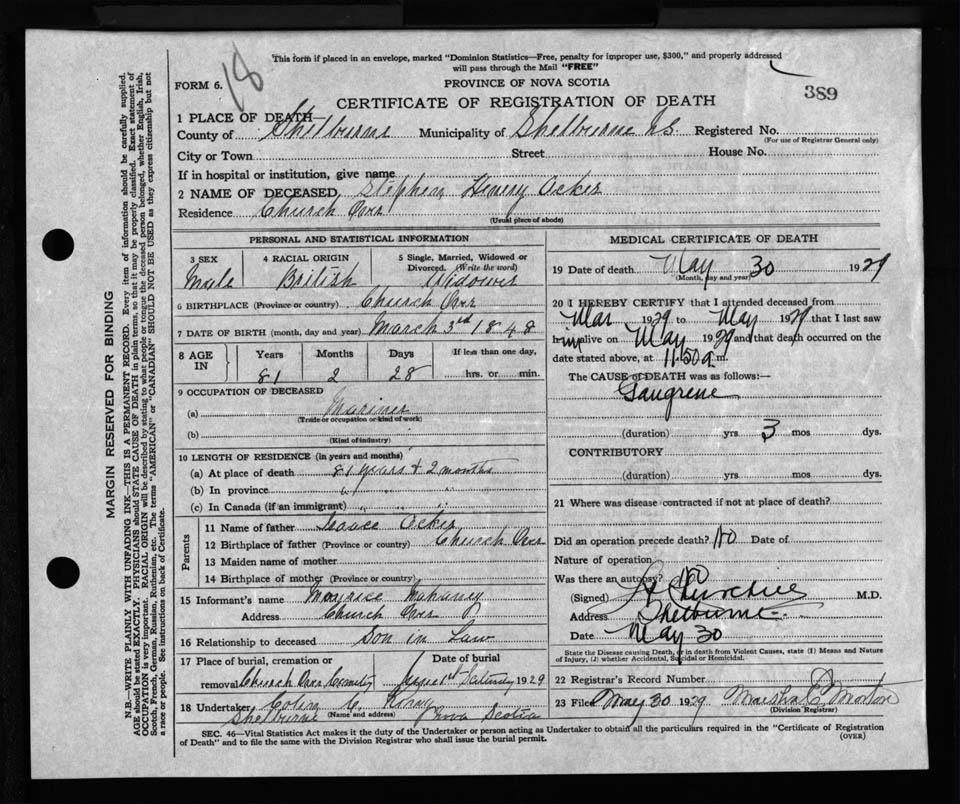 This form if placed in an envelope, marked "Dominion Statistics—Free, penalty for improper use, $300," and properly addressed
will pass through the Mail "FREE"
18
FORM 6.
PROVINCE OF NOVA SCOTIA
389
CERTIFICATE OF REGISTRATION OF DEATH
1 PLACE OF DEATH—
County of Shelburne Municipality of Shelburne NS Registered No.
(For use of Registrar General only)
City or Town Street House No.
If in hospital or institution, give name
2 NAME OF DECEASED Stephen Henry Acker
Residence Church Over
(Usual place of abode)
PERSONAL AND STATISTICAL INFORMATION
3 SEX 4 RACIAL ORIGIN 5 Single, Married, Widowed or
Divorced. (Write the word)
Male British Widower
6 BIRTHPLACE (Province or country) Church Over
7 DATE OF BIRTH (month, day and year) March 3rd 1848
8 AGE IN Years Months Days If less than one day,
81 2 28 hrs. or min.
9 OCCUPATION OF DECEASED
(a) Mariner
(Trade or occupation or kind of work)
(b)
(Kind of industry)
10 LENGTH OF RESIDENCE (in years and months)
(a) At place of death 81 years & 2 months
(b) In province " "
(c) In Canada (if an immigrant) " " "
Parents
11 Name of father Acker
12 Birthplace of father (Province or country) Church Over
13 Maiden name of mother
14 Birthplace of mother (Province or country)
15 Informant's name
Address Church Over
16 Relationship to deceased Son in Law
17 Place of burial, cremation or Date of burial
removal Church Over June 1st Saturday 1929
18 Undertaker Colin C.
Shelburne (Name and address) Nova Scotia
MEDICAL CERTIFICATE OF DEATH
19 Date of death May 30 1929
(Month, day and year)
20 I HEREBY CERTIFY that I attended deceased from
Mar 1929 to May 1929 that I last saw
him alive on May 1929 and that death occurred on the
date stated above, at 11.50 a m.
The CAUSE of DEATH was as follows:—
Gangrene
(duration) yrs 3 mos dys.
CONTRIBUTORY
(duration) yrs. mos. dys.
21 Where was disease contracted if not at place of death?
Did an operation precede death? No Date of
Nature of operation
Was there an autopsy? No
(Signed) M.D.
Address Shelburne
Date May 30
State the Disease causing Death, or in death from Violent Causes, state (1) Means and Nature
of Injury, (2) whether Accidental, Suicidal or Homicidal.
22 Registrar's Record Number
23 Filed May 30 1929 Marshall Morton
(Division Registrar)
SEC. 46—Vital Statistics Act makes it the duty of the Undertaker or person acting as Undertaker to obtain all the particulars required in the "Certificate of Registration
of Death" and to file the same with the Division Registrar who shall issue the burial permit. (OVER)
MARGIN RESERVED FOR BINDING
N.B.—WRITE PLAINLY WITH UNFADING INK—THIS IS A PERMANENT RECORD. Every item of information should be carefully supplied.
AGE should be stated EXACTLY. PHYSICIANS should STATE CAUSE OF DEATH in plain terms, so that it may be properly classified. Exact statement of
OCCUPATION is very important. RACIAL ORIGIN will be described by stating to what people or tongue the deceased person belonged, whether English, Irish,
Scotch, French, German, Russian, Ruthenian, etc. The terms "AMERICAN" or "CANADIAN" SHOULD NOT BE USED as they express citizenship but not
a race or people. See instructions on back of Certificate.